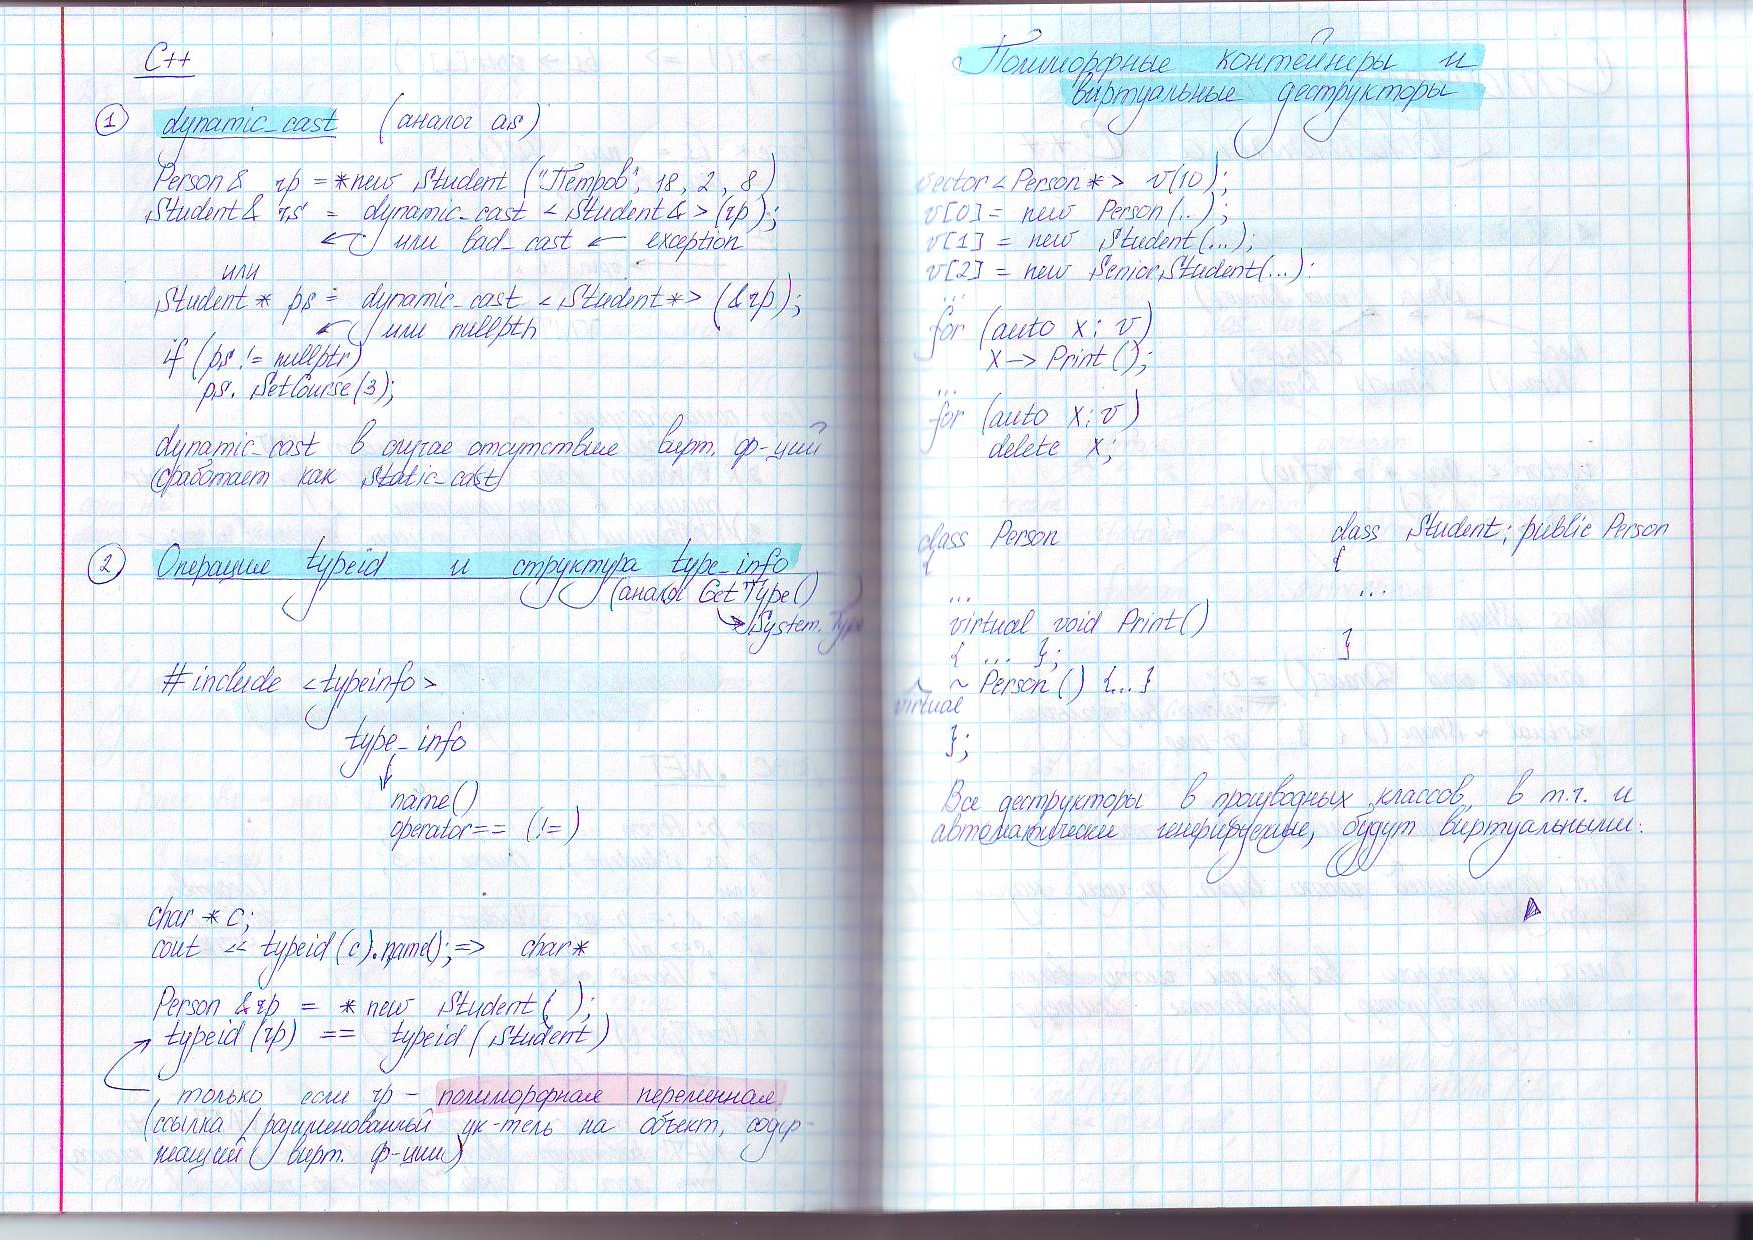 C++
① dynamic_cast (аналог as)
Person& rp = *new Student ("Петров", 18, 2, 8)
Student& rs = dynamic_cast <Student&>(rp);
или bad_cast ← exception
или
Student* ps = dynamic_cast <Student*> (&rp);
или nullpth
if (ps != nullptr)
ps. SetCourse(3);
dynamic_cast в случае отсутствие вирт. ф-ций
сработает как static_cast
② Операция typeid и структура type_info
(аналог GetType()
→ System.Type
#include <typeinfo>
type_info
↓
name()
operator== (!=)
char * c;
cout << typeid(c).name(); => char*
Person &rp = * new Student( );
typeid(rp) == typeid(Student)
только если rp – полиморфная переменная
(ссылка / разыменованный ук-тель на объект, содер-
жащий вирт. ф-ции)
Полиморфные контейнеры и
виртуальные деструкторы
vector<Person*> v(10);
v[0] = new Person(..);
v[1] = new Student(...);
v[2] = new SeniorStudent(...):
...
for (auto x: v)
x -> Print();
...
for (auto x: v)
delete x;
class Person
{
...
virtual void Print()
{ ... };
~ Person() {...}
virtual
};
class Student; public Person
{
...
}
Все деструкторы в производных классов, в т.ч. и
автоматически генерируемые, будут виртуальными.